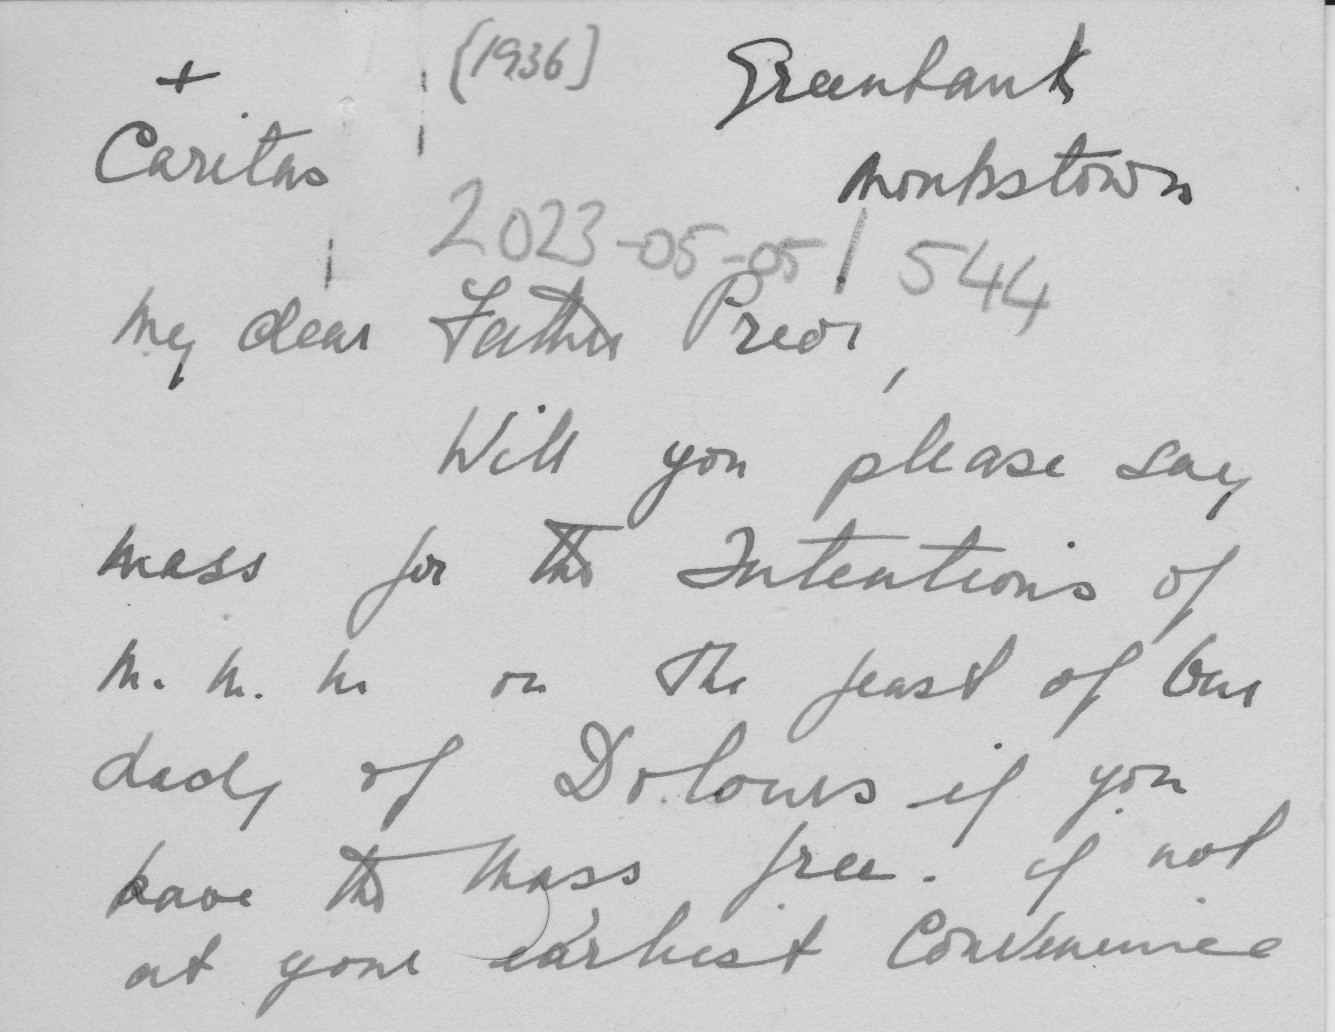 + [1936] Greenbank
Caritas Monkstown
2023-05-05/544
My dear Father Prior,
Will you please say
mass for the Intentions of
M. M. M on the feast of Our
Lady of Dolours if you
have the Mass free. if not
at your earliest Convenience